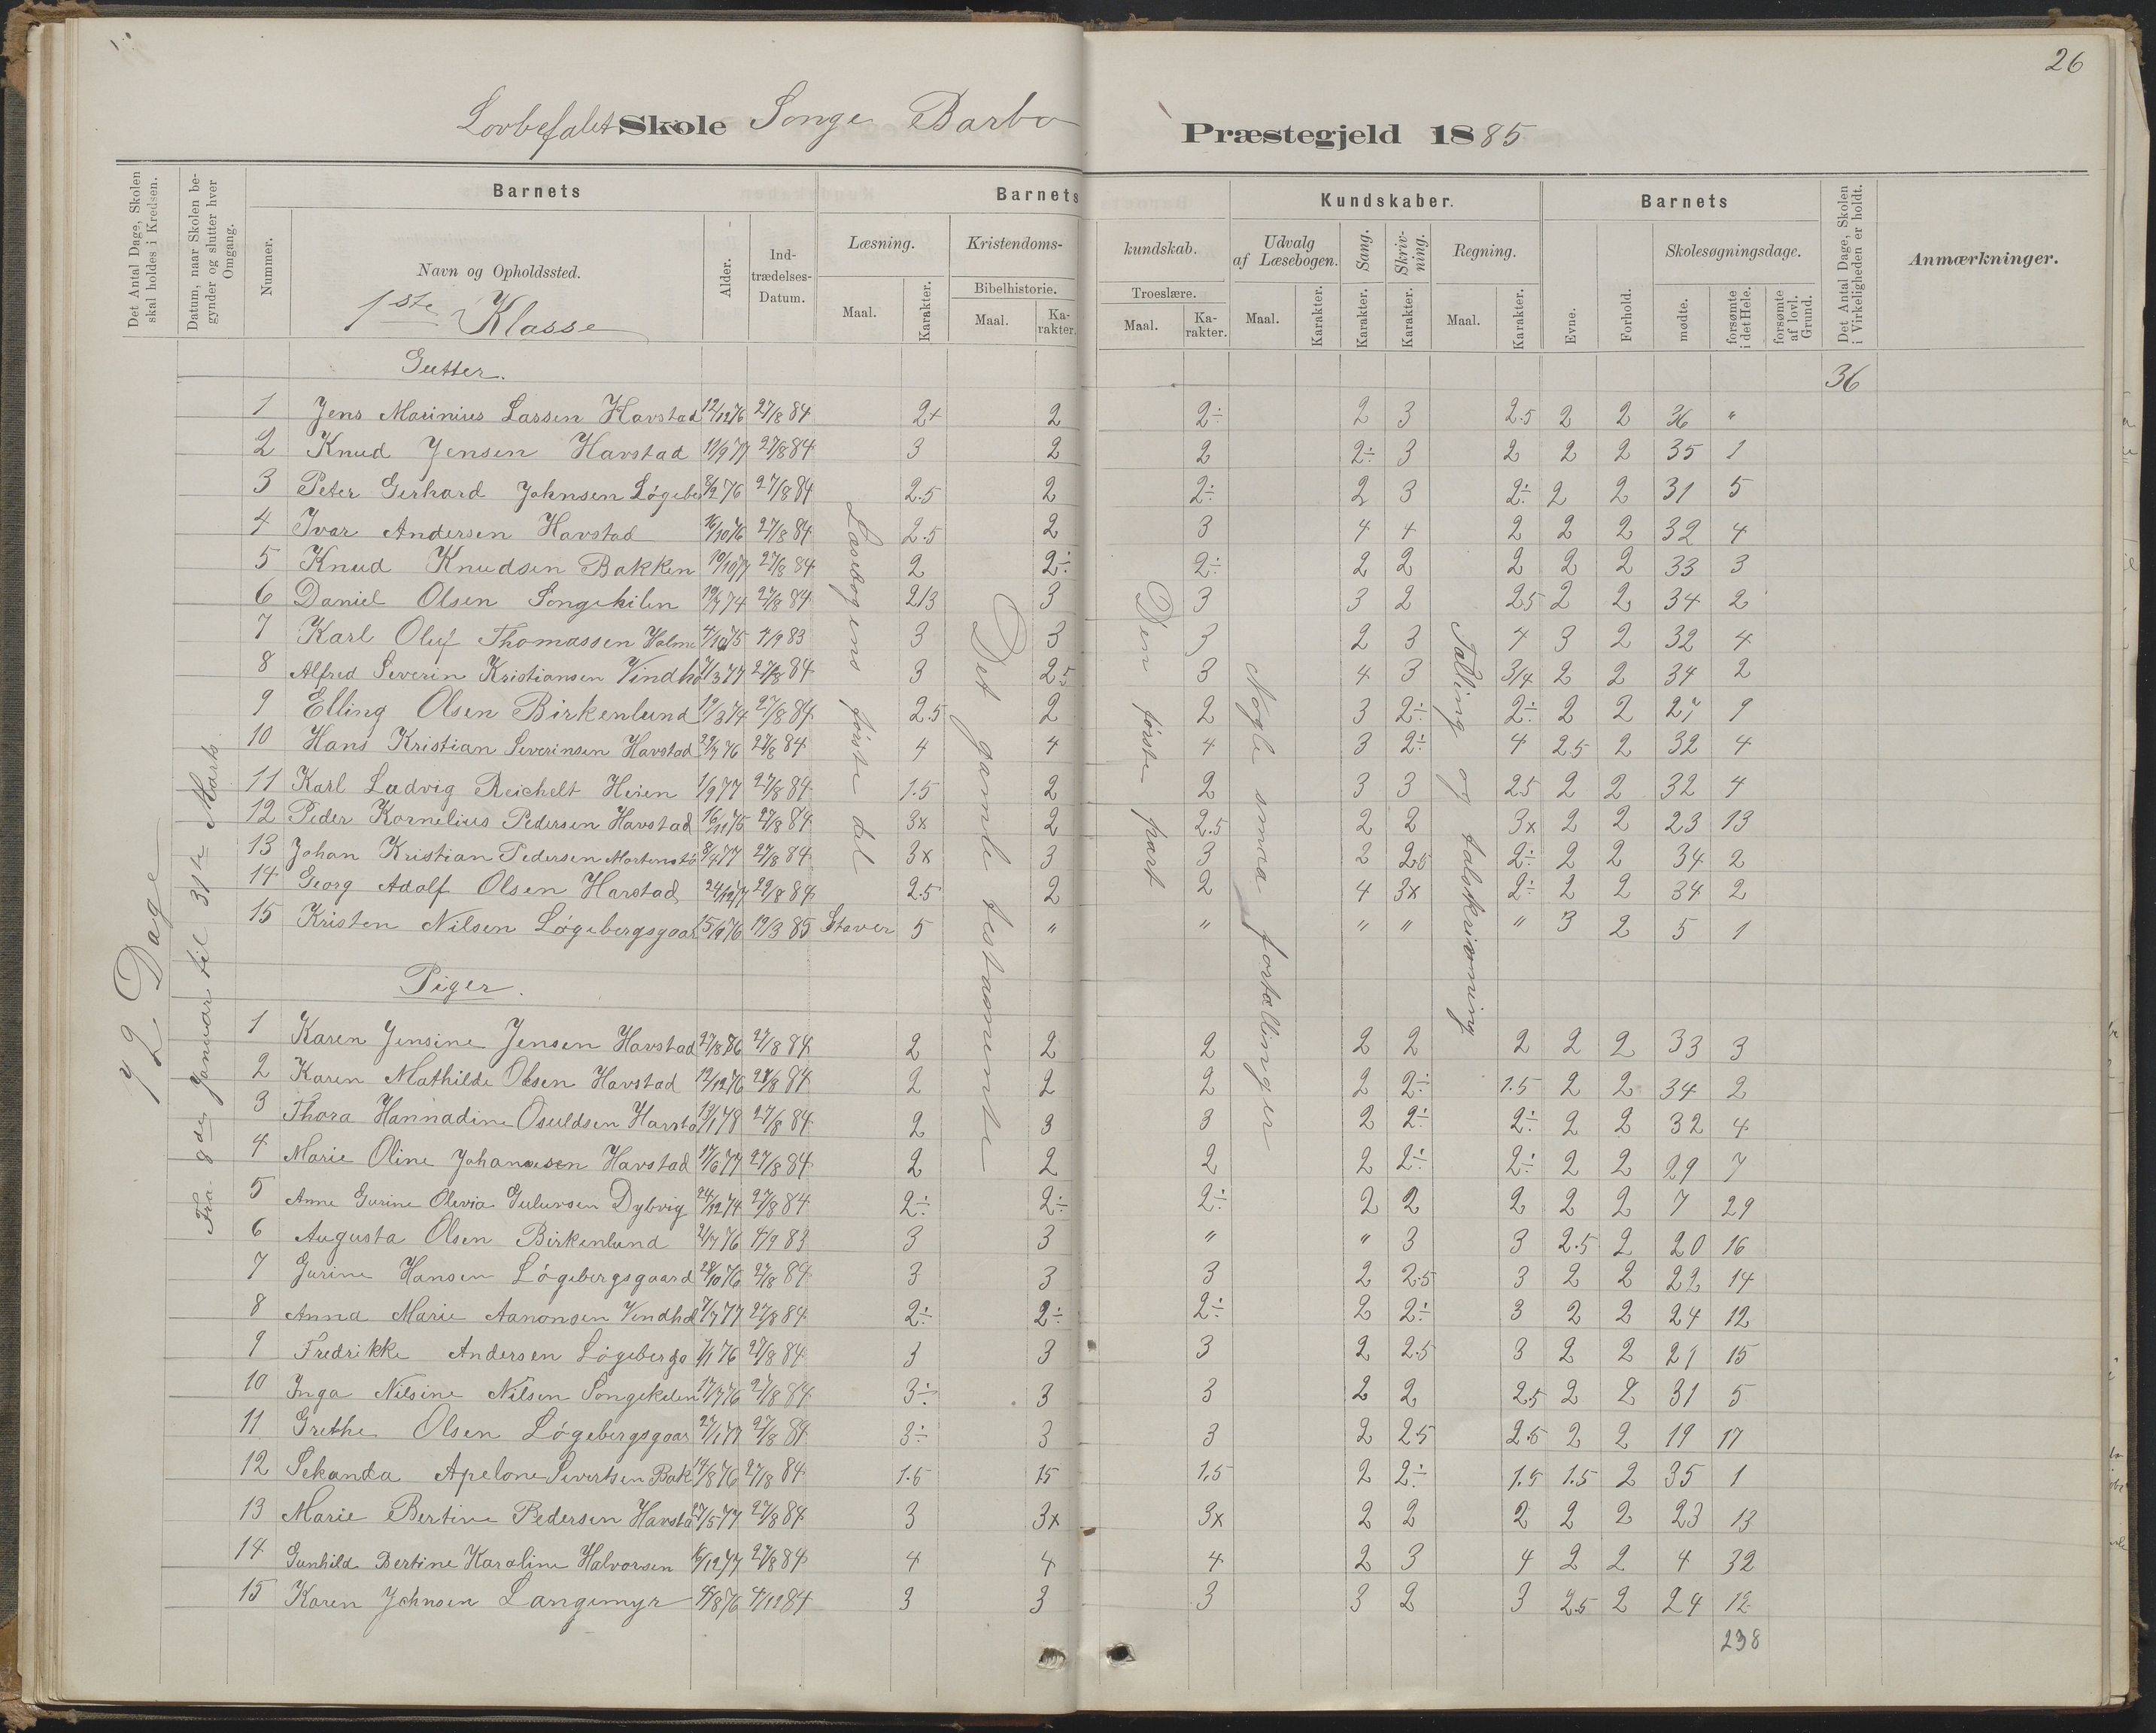 26
Lovbefalet Skole Songe Barbo Præstegjeld 1885
Det Antal Dage, Skolen skal holdes i Kredsen.
Datum, naar Skolen begynder og slutter hver Omgang.
Barnets
Barnets Kundskaber.
Barnets
Det Antal Dage, Skolen i Virkeligheden er holdt.
Anmærkninger.
Nummer.
Navn og Opholdssted.
Alder.
Ind-trædelses-Datum.
Læsning.
Kristendoms-kundskab.
Udvalg af Læsebogen.
Sang.
Skriv-ning.
Regning.
Evne.
Forhold.
Skolesøgningsdage.
Bibelhistorie.
Troeslære.
Maal. Karakter. Maal. Ka-rakter. Maal. Ka-rakter. Maal. Karakter. Karakter. Karakter. Maal. Karakter.
mødte. forsømte i det Hele. forsømte af lovl. Grund.
1ste Klasse
72 Dage
Fra 8de Januar til 31te Marts.
Læsebogens første del
Det gamle testamente
Den første part
Nogle smaa fortællinger
Tælling og talskrivning
Gutter.
36
1 Jens Marinius Lassen Havstad 12/12 76 27/8 84 2+ 2 2÷ 2 3 2.5 2 2 36 "
2 Knud Jensen Havstad 11/9 77 27/8 84 3 2 2 2÷ 3 2 2 2 35 1
3 Peter Gerhard Johnsen Løgebe 8/2 76 27/8 84 2.5 2 2÷ 2 3 2÷ 2 2 31 5
4 Ivar Andersen Havstad 16/10 76 27/8 84 2.5 2 3 4 4 2 2 2 32 4
5 Knud Knudsen Bakken 10/10 77 27/8 84 2 2÷ 2÷ 2 2 2 2 2 33 3
6 Daniel Olsen Songekilen 74 27/8 84 2/3 3 3 3 2 2.5 2 2 34 2
7 Karl Oluf Thomassen Holme 4/10 75 4/9 83 3 3 3 2 3 4 3 2 32 4
8 Alfred Severin Kristiansen Vindho 7/3 77 27/8 84 3 2.5 3 4 3 3/4 2 2 34 2
9 Elling Olsen Birkenlund 19/3 74 27/8 84 2.5 2 2 3 2÷ 2÷ 2 2 27 9
10 Hans Kristian Severinsen Havstad 29/7 76 27/8 84 4 4 4 3 2÷ 4 2.5 2 32 4
11 Karl Ludvig Reichelt Heien 1/9 77 27/8 84 1.5 2 2 3 3 2.5 2 2 32 4
12 Peder Kornelius Pedersen Havstad 16/11 75 27/8 84 3x 2 2.5 2 2 3x 2 2 23 13
13 Johan Kristian Pedersen 8/4 77 27/8 84 3x 3 3 2 2.5 2÷ 2 2 34 2
14 Georg Adolf Olsen Havstad 24/12 77 29/8 84 2.5 2 2 4 3x 2÷ 2 2 34 2
15 Kristen Nilsen Løgebergsgaar 15/9 76 19/3 85 Staver 5 " " " " " 3 2 5 1
Piger.
1 Karen Jensine Jensen Havstad 27/8 76 27/8 84 2 2 2 2 2 2 2 2 33 3
2 Karen Mathilde Olsen Havstad 12/12 76 27/8 84 2 2 2 2 2÷ 1.5 2 2 34 2
3 Thora Hannadine Osuldsen Havsta 13/1 78 27/8 84 2 3 3 2 2÷ 2÷ 2 2 32 4
4 Marie Oline Johannesen Havstad 17/6 77 27/8 84 2 2 2 2 2÷ 2÷ 2 2 29 7
5 Anne Gurine Olevia Guluvsen Dybvig 24/12 74 27/8 84 2÷ 2÷ 2÷ 2 2 2 2 2 7 29
6 Augusta Olsen Birkenlund 2/7 76 4/9 83 3 3 " " 3 3 2.5 2 20 16
7 Gurine Hansen Løgebergsgaard 28/10 76 27/8 84 3 3 3 2 2.5 3 2 2 22 14
8 Anna Marie Aanonsen Vindhol 7/7 77 27/8 84 2÷ 2÷ 2÷ 2 2÷ 3 2 2 24 12
9 Fredrikke Andersen Løgeberga 1/1 76 27/8 84 3 3 3 2 2.5 3 2 2 21 15
10 Inga Nilsine Nilsen Songekilen 17/7 76 27/8 84 3÷ 3 3 2 2 2.5 2 2 31 5
11 Grethe Olsen Løgebergsgaar 27/1 77 27/8 84 3÷ 3 3 2 2.5 2.5 2 2 19 17
12 Sekanda Apelone Sivertsen Bak 14/8 76 27/8 84 1.5 15 1,5 2 2÷ 1.5 1.5 2 35 1
13 Marie Bertine Pedersen Havsta 27/5 77 27/8 84 3 3x 3x 2 2 2 2 2 23 13
14 Gunhild Bertine Karoline Halvorsen 16/12 77 27/8 84 4 4 4 2 3 4 2 2 4 32
15 Karen Johnsen Langemyr 4/8 76 4/12 84 3 3 3 3 2 3 2.5 2 24 12
238